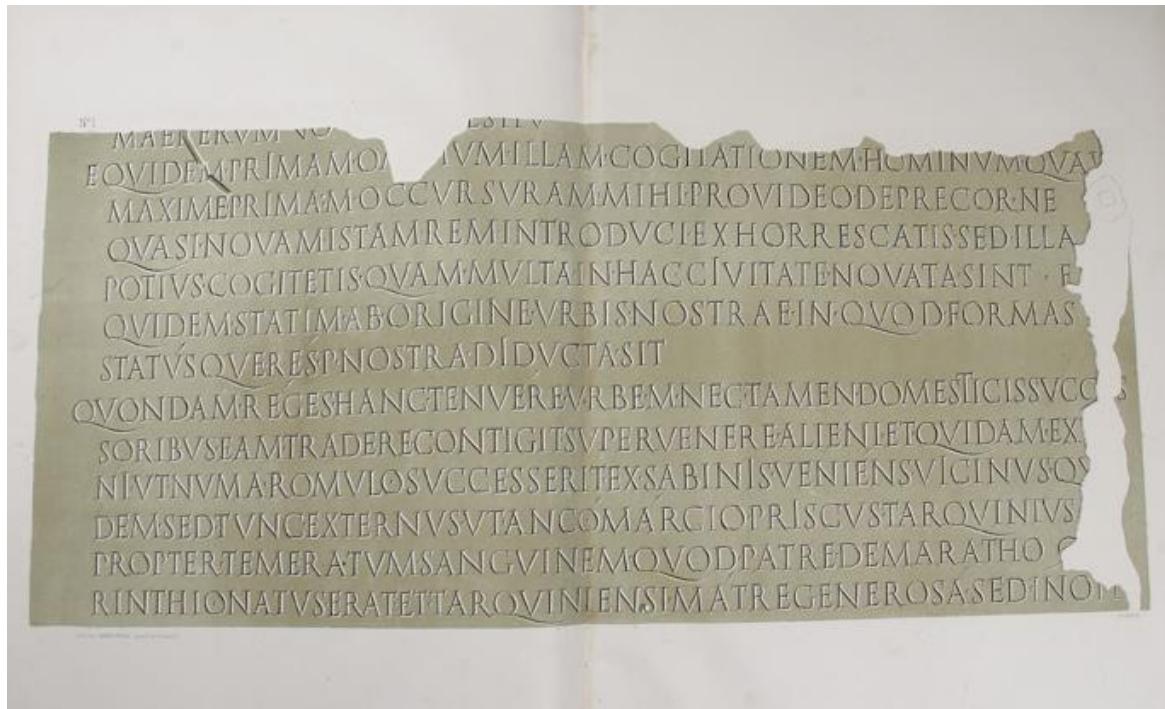 Nº 1
MAE RERVM NO
EQVIDEM·PRIMAM·O IVM·ILLAM·COGITATIONEM·HOMINVM·QVA
MAXIME·PRIMA·M·OCCVRSVRAM·MIHI·PROVIDEO·DEPRECOR·NE
QVASI·NOVAM·ISTAM·REM·INTRODVCI·EXHORRESCATIS·SED·ILLA
POTIVS·COGITETIS·QVAM·MVLTA·IN·HAC·CÍVITATE·NOVATA·SINT · E
QVIDEM·STATIM·AB·ORIGINE·VRBIS·NOSTRAE·IN·QVOD·FORMAS
STATVSQVE·RES·P·NOSTRA·DIDVCTA·SIT
QVONDAM·REGES·HANC·TENVERE·VRBEM·NEC·TAMEN·DOMESTICIS·SVCC S
SORIBVS·EAM·TRADERE·CONTIGIT·SVPERVENERE·ALIENI·ET·QVIDAM·EX
NI·VT·NVMA·ROMVLO·SVCCESSERIT·EX·SABINIS·VENIENS·VICINVS·QV
DEM·SED·TVNC·EXTERNVS·VT·ANCO·MARCIO·PRISCVS·TARQVINIVS
PROPTER·TEMERATVM·SANGVINEM·QVOD·PATRE·DEMARATHO
RINTHIO·NATVS·ERAT·ET·TARQVINIENSI·MATRE·GENEROSA·SED·INO